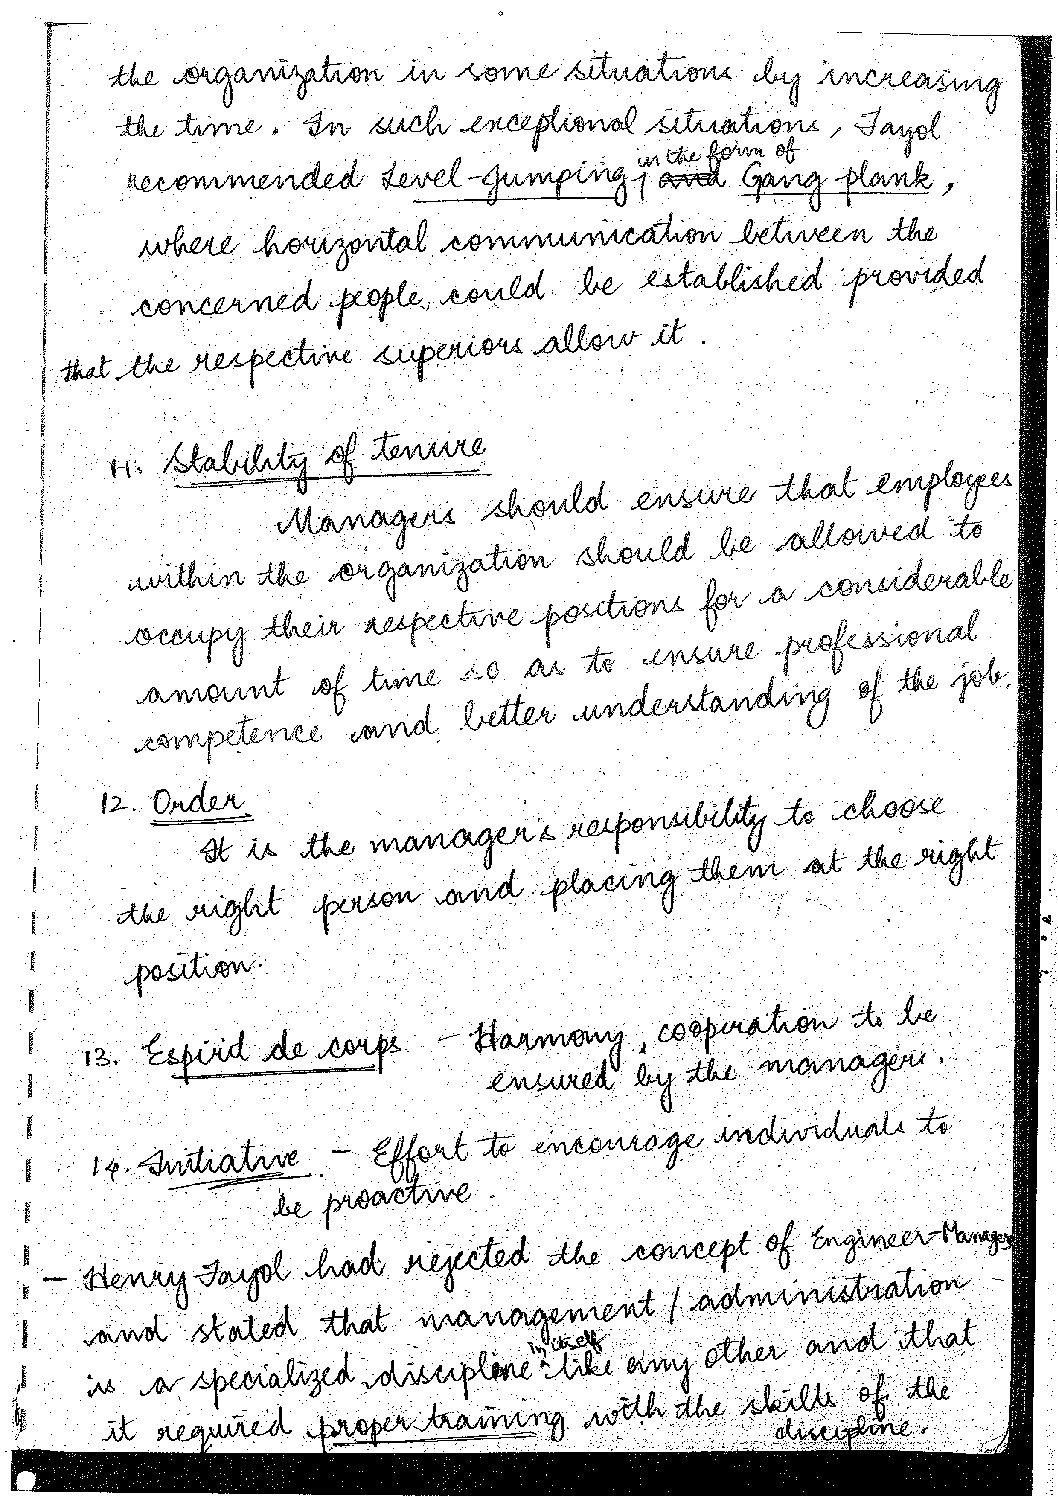 the organization in some situations by increasing
the time. In such exceptional situations, Fayol
in the form of
recommended Level-Jumping, and Gang plank,
where horizontal communication between the
concerned people, could be established provided
that the respective superiors allow it.
11. Stability of tenure
Managers should ensure that employees
within the organization should be allowed to
occupy their respective positions for a considerable
amount of time so as to ensure professional
competence and better understanding of the job.
12. Order
It is the managers responsibility to choose
the right person and placing them at the right
position.
13. Espirid de corps - Harmony, cooperation to be
ensured by the managers.
14. Initiative - Effort to encourage individuals to
be proactive.
- Henry Fayol had rejected the concept of Engineer-Manager
and stated that management / administration
in itself
is a specialized discipline like any other and that
it required proper training with the skills of the
discipline.